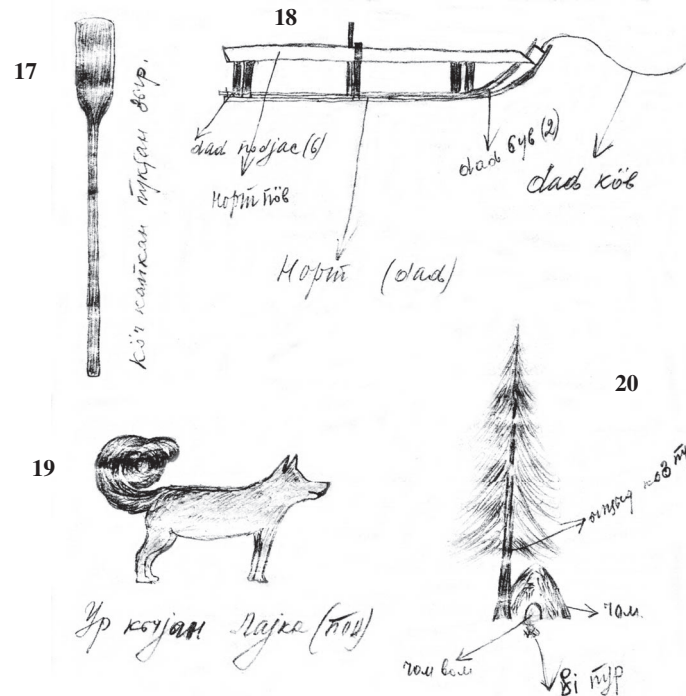 17
Кöч капкан пуктан зыр.
18
dad подjас (6)
Норт пöв
dad сув (2)
dad кöв
Норт (dad)
19
Ур кыjан Лаjка (пон)
20
коз пу
чом.
чом вом